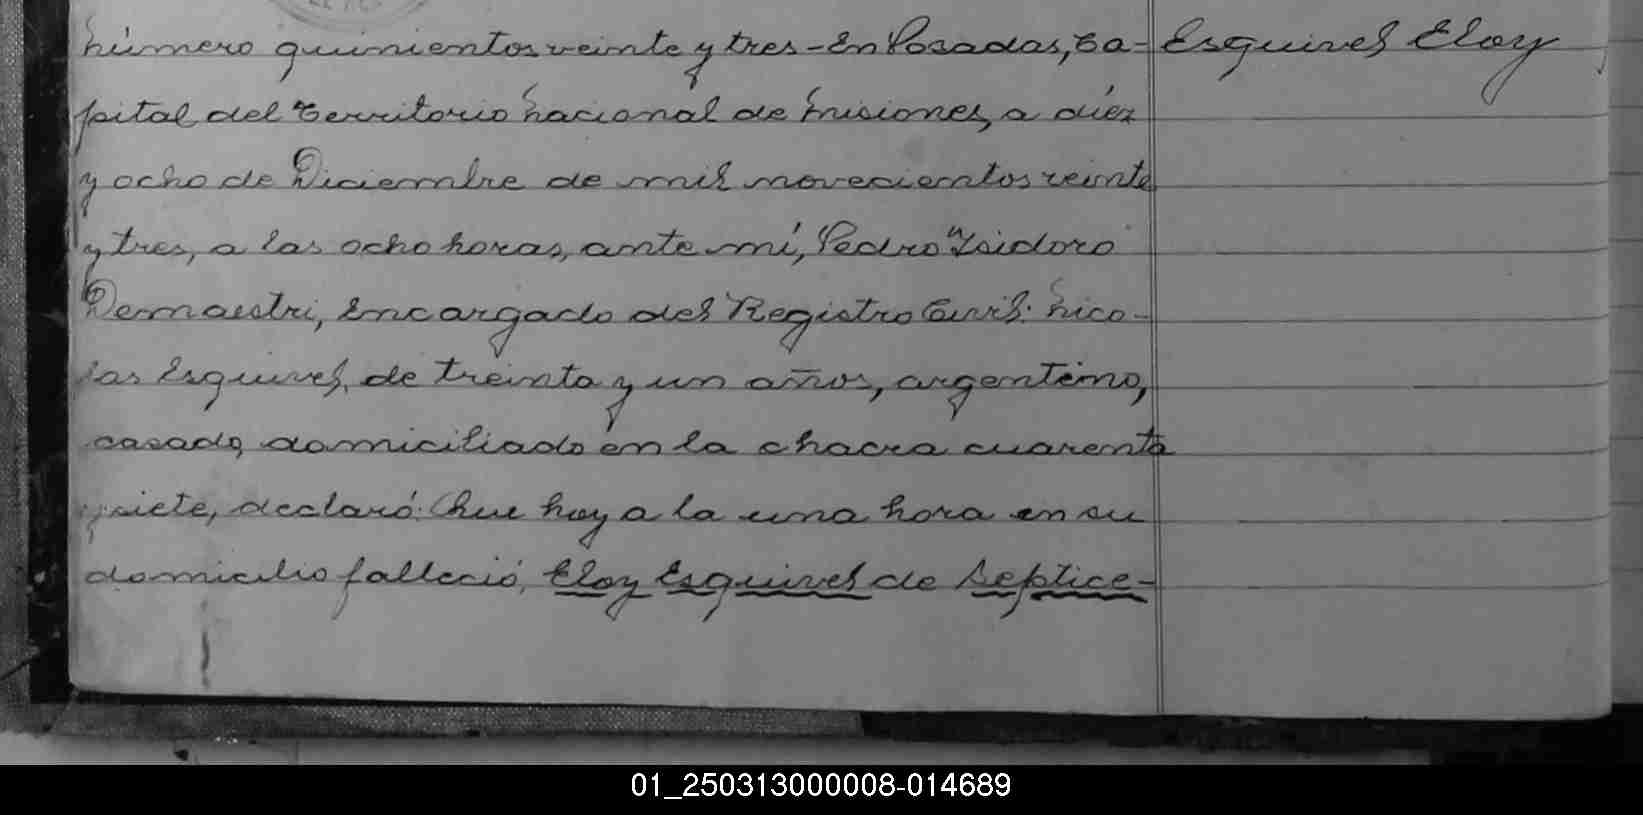 número quinientos veinte y tres - En Posadas, Ca- Esquivel Eloy
pital del Territorio Nacional de Misiones, a diéz
y ocho de Diciembre de mil novecientos veinte
y tres, a las ocho horas, ante mí, Pedro Isidoro
Demaestri, Encargado del Registro Civil: Nico-
las Esquivel, de treinta y un años, argentino,
casado, domiciliado en la chacra cuarenta
y siete, declaró: Que hoy a la una hora en su
domicilio falleció, Eloy Esquivel de Septice-
01_250313000008-014689